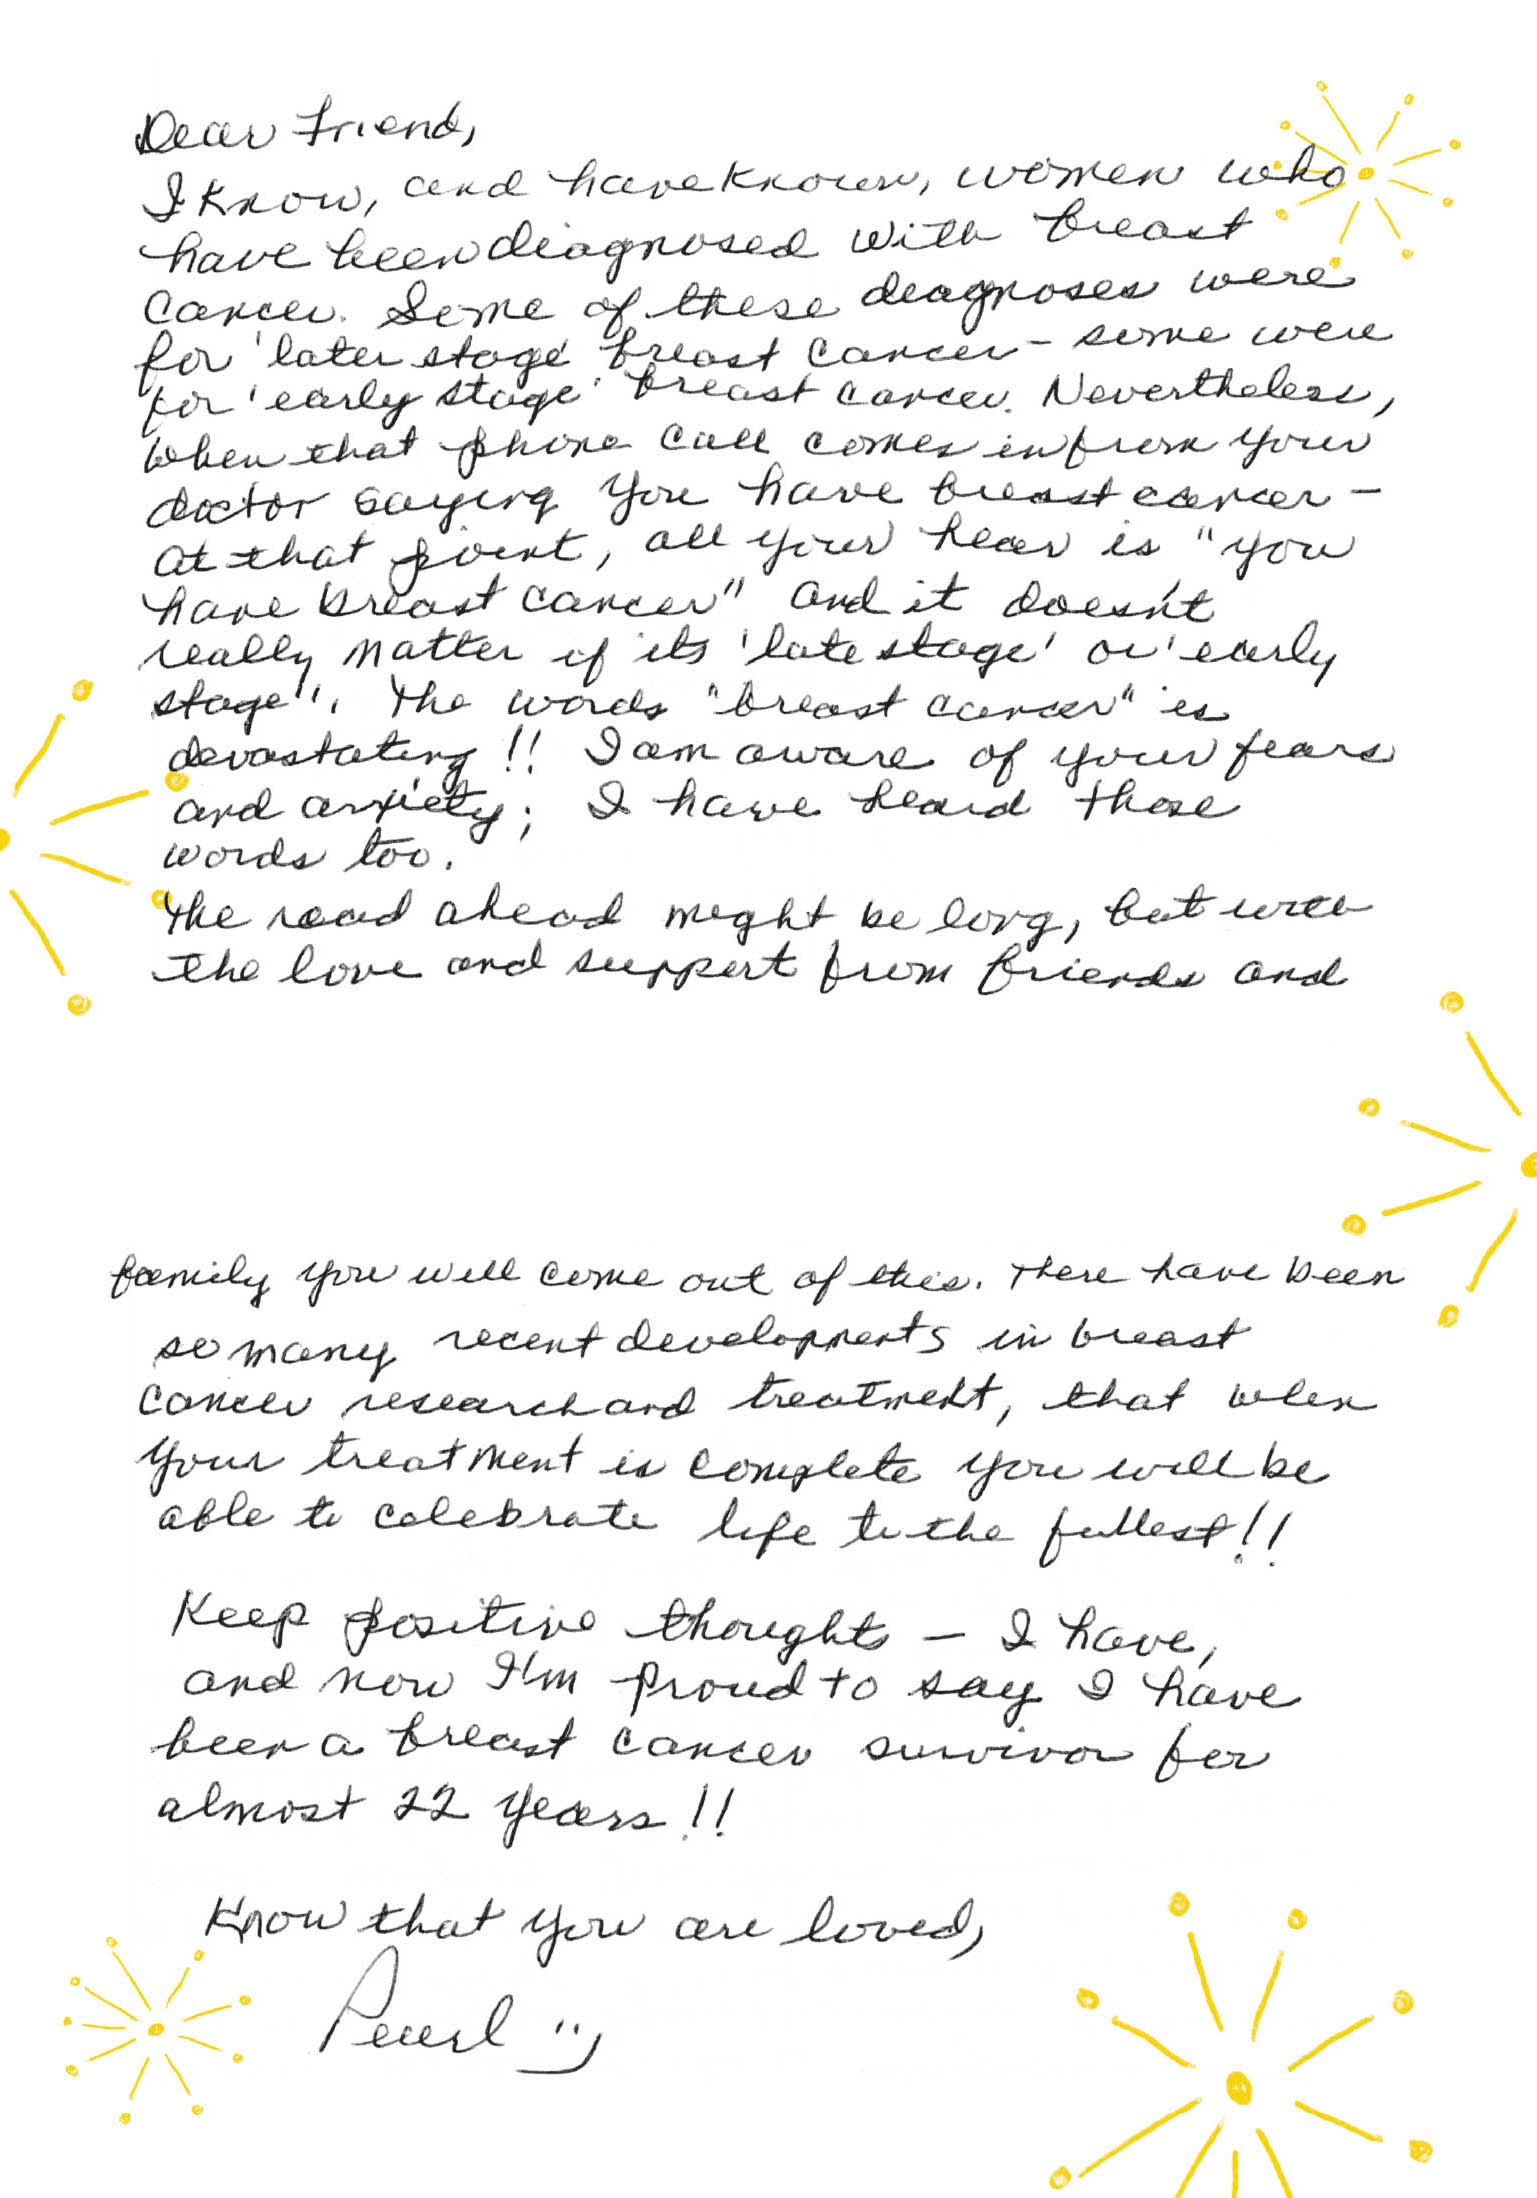 Dear Friend,
I know, and have known, women who
have been diagnosed with breast
cancer. Some of these diagnoses were
for 'later stage' breast cancer - some were
for 'early stage' breast cancer. Nevertheless,
when that phone call comes in from your
doctor saying you have breast cancer -
at that point, all your hear is "you
have breast cancer" and it doesn't
really matter if its 'late stage' or 'early
stage". The words "breast cancer" is
devastating!! I am aware of your fears
and anxiety; I have heard those
words too.
The road ahead might be long, but with
the love and support from friends and
family you will come out of this. There have been
so many recent developments in breast
cancer research and treatment, that when
your treatment is complete you will be
able to celebrate life to the fullest!!
Keep positive thoughts - I have,
and now I'm proud to say I have
been a breast cancer survivor for
almost 22 years!!
Know that you are loved,
Pearl :)